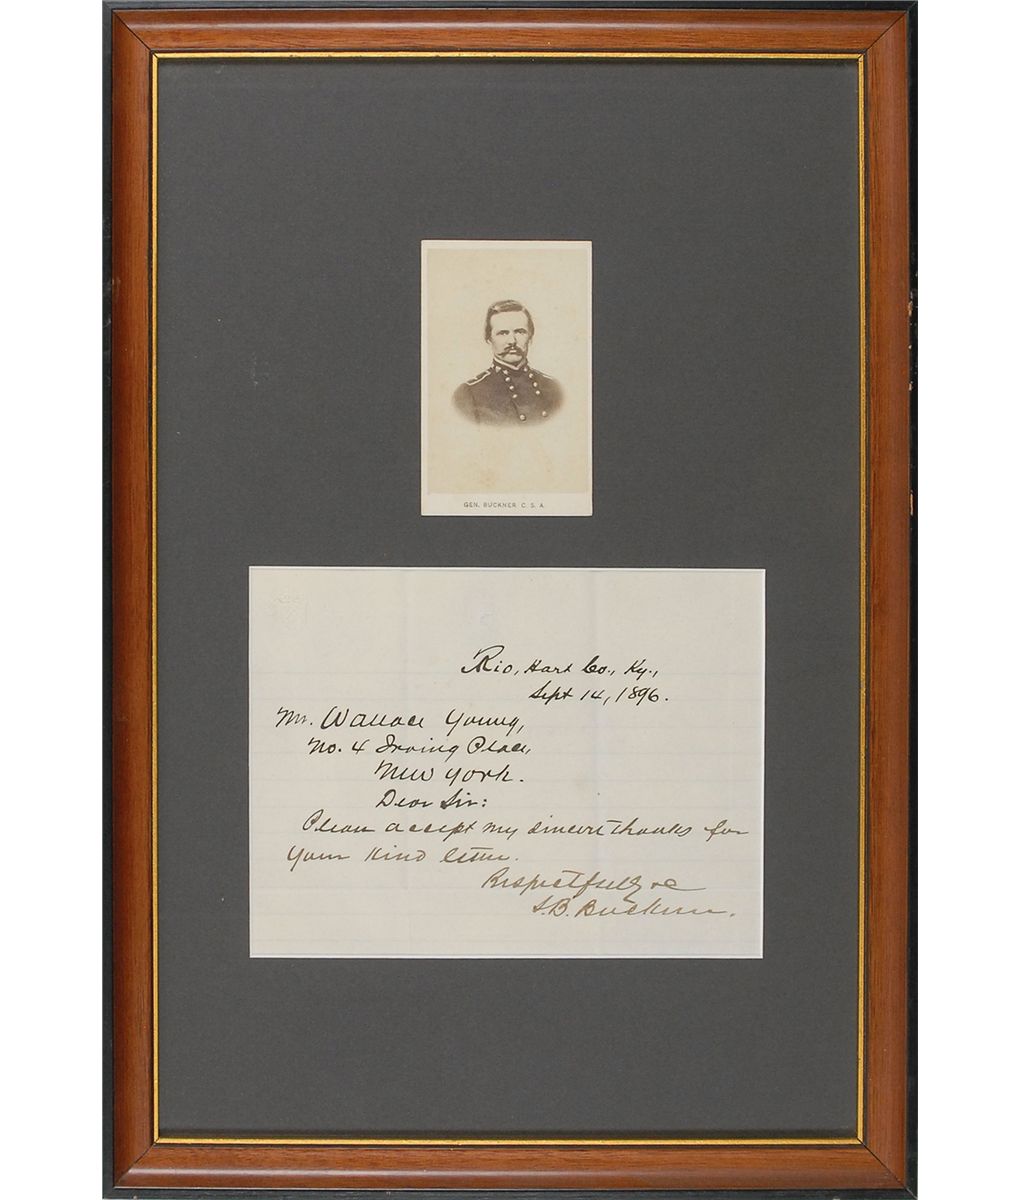 GEN. BUCKNER C. S. A.
Rio, Hart Co., Ky.,
Sept 14, 1896.
Mr. Wallace Young,
No. 4 Irving Place,
New York.
Dear Sir:
Please accept my sincere thanks for
your kind letter.
Respectfully &c
S. B. Buckner.